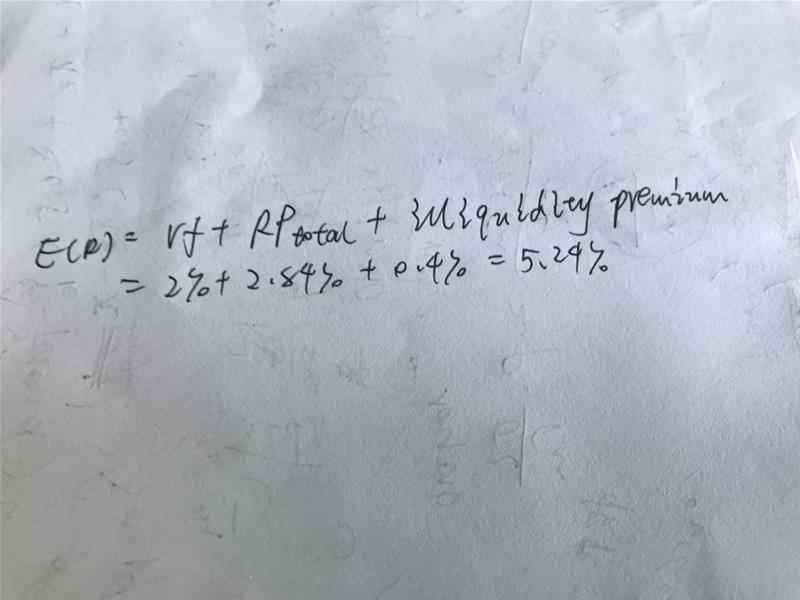 E(R) = rf + RPtotal + illiquidity premium
= 2% + 2.84% + 0.4% = 5.24%